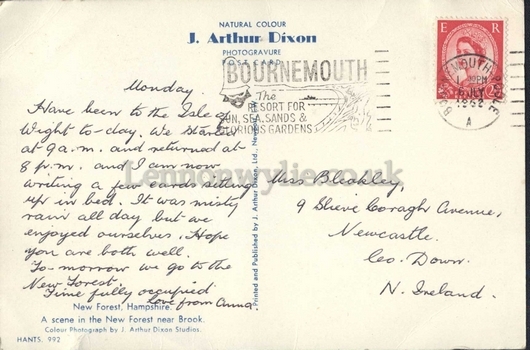 NATURAL COLOUR
J. Arthur Dixon
PHOTOGRAVURE
POST CARD
BOURNEMOUTH
The
RESORT FOR
SUN, SEA, SANDS &
GLORIOUS GARDENS
E R
BOURNEMOUTH POOLE
PM
JLY
1962
A
Monday.
Have been to the Isle of
Wight to-day. We started
at 9 a.m. and returned at
8 p.m. and I am now
writing a few cards sitting
up in bed. It was misty
rain all day but we
enjoyed ourselves. Hope
you are both well.
To-morrow we go to the
New Forest.
Time fully occupied
Love from Anna.
Printed and Published by J. Arthur Dixon, Ltd., Newport
Miss Bleakley,
9 Slieve Coragh Avenue,
Newcastle.
Co. Down.
N. Ireland.
Lennonwylie.co.uk
New Forest, Hampshire.
A scene in the New Forest near Brook.
Colour Photograph by J. Arthur Dixon Studios.
HANTS. 992